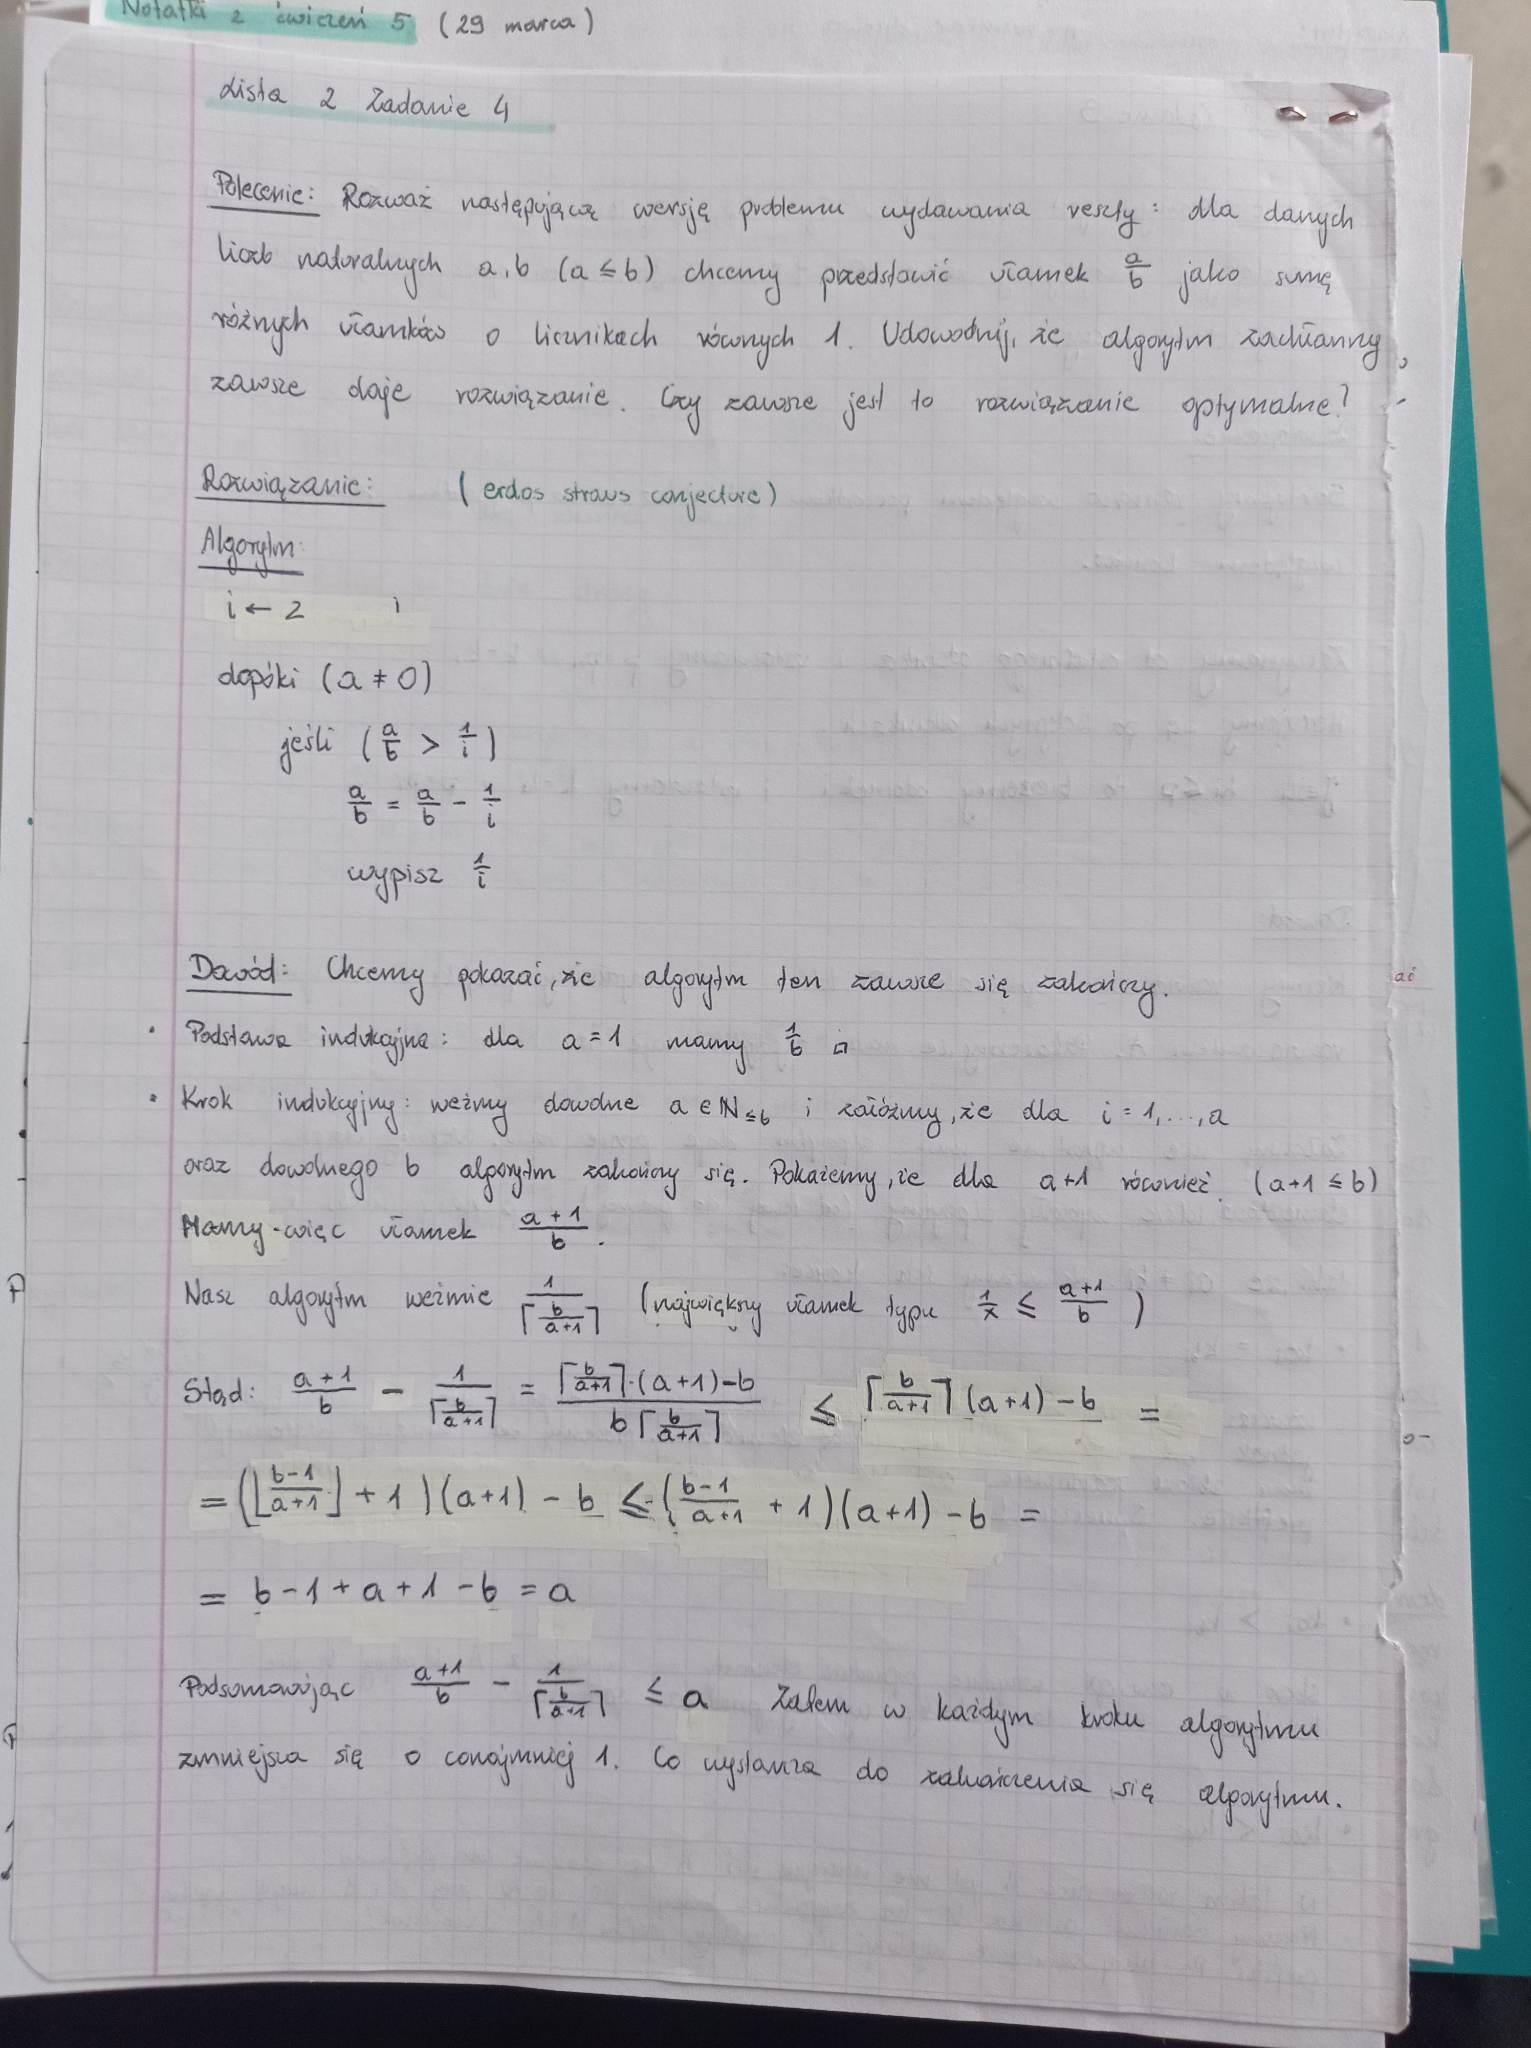 Notatki z ćwiczeń 5 (29 marca)
Lista 2 Zadanie 4
Polecenie: Rozważ następującą wersję problemu wydawania reszty: dla danych
liczb naturalnych a, b (a ≤ b) chcemy przedstawić ułamek a/b jako sumę
różnych ułamków o licznikach równych 1. Udowodnij, że algorytm zachłanny
zawsze daje rozwiązanie. Czy zawsze jest to rozwiązanie optymalne?
Rozwiązanie: (erdos straus conjecture)
Algorytm:
i ← 2
dopóki (a ≠ 0)
jeśli (a/b > 1/i)
a/b = a/b - 1/i
wypisz 1/i
Dowód: Chcemy pokazać, że algorytm ten zawsze się zakończy.
• Podstawa indukcyjna: dla a = 1 mamy 1/b □
• Krok indukcyjny: weźmy dowolne a ∈ ℕ≤b i załóżmy, że dla i = 1, ..., a
oraz dowolnego b algorytm zakończy się. Pokażemy, że dla a+1 również. (a+1 ≤ b)
Mamy więc ułamek (a+1)/b.
Nasz algorytm weźmie 1/⌈b/(a+1)⌉ (największy ułamek typu 1/x ≤ (a+1)/b)
Stąd: (a+1)/b - 1/⌈b/(a+1)⌉ = (⌈b/(a+1)⌉·(a+1)-b)/(b⌈b/(a+1)⌉) ≤ ⌈b/(a+1)⌉(a+1) - b =
= (⌊(b-1)/(a+1)⌋ + 1)(a+1) - b ≤ ((b-1)/(a+1) + 1)(a+1) - b =
= b - 1 + a + 1 - b = a
Podsumowując (a+1)/b - 1/⌈b/(a+1)⌉ ≤ a Zatem w każdym kroku algorytmu
zmniejsza się o conajmniej 1. Co wystarcza do zakończenia się algorytmu.